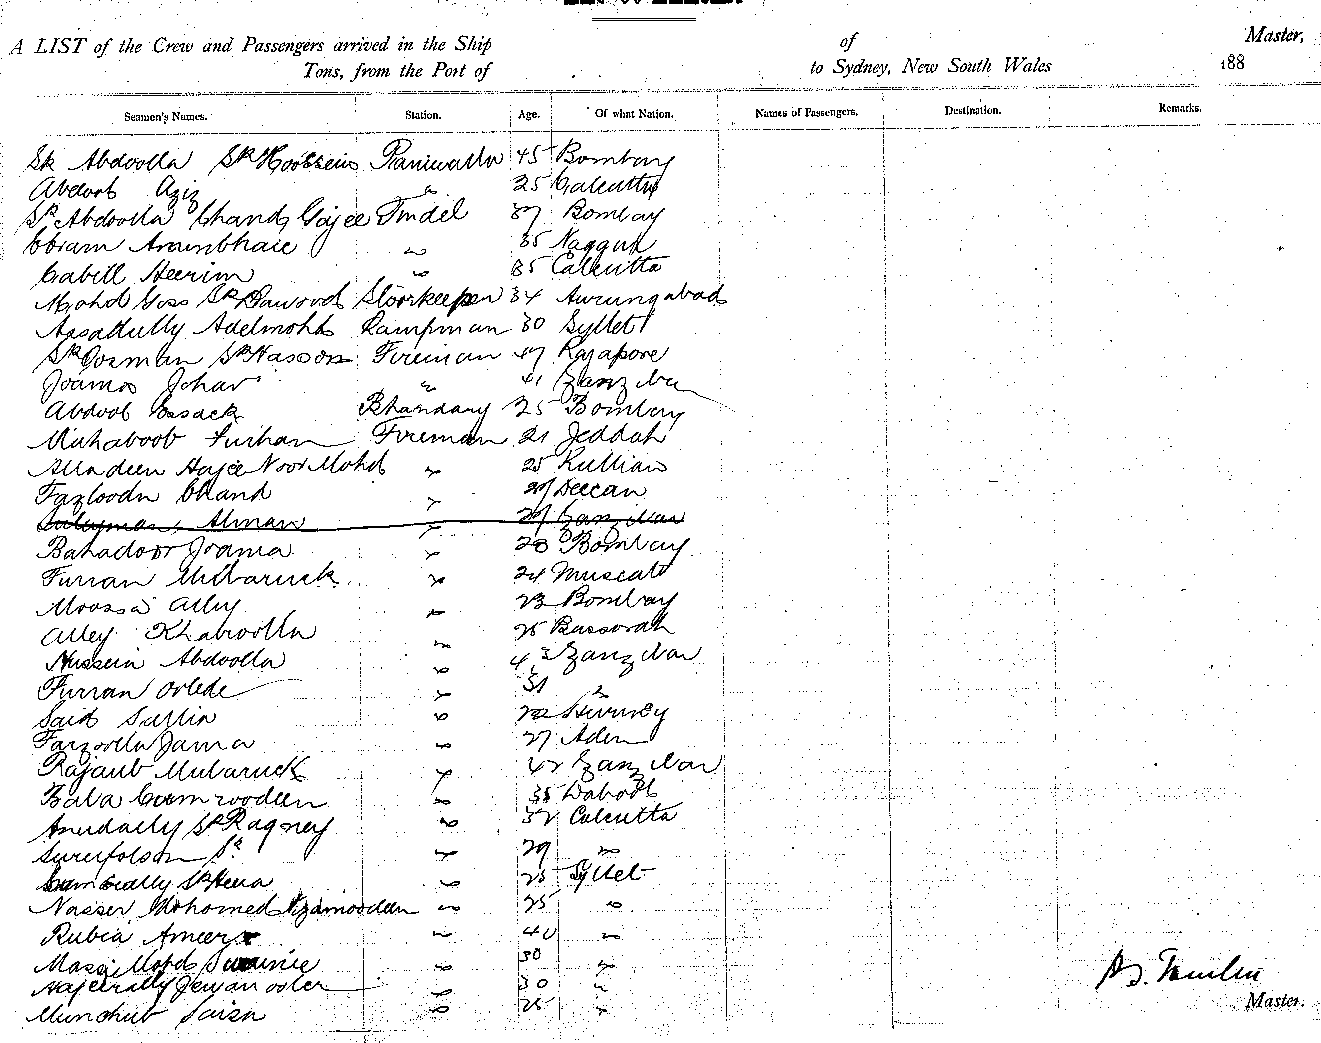 A LIST of the Crew and Passengers arrived in the Ship of Master,
Tons, from the Port of to Sydney, New South Wales 188
Seamen's Names. Station. Age. Of what Nation. Names of Passengers. Destination. Remarks.
Sk Abdoolla Sk Hoossein Paniwalla 45 Bombay
Abdool Aziz " 25 Calcutta
Sk Abdoolla Chand Gajee Tindel 37 Bombay
Ebram Araimbhaie " 35 Naggur
Cabill Heerim " 35 Calcutta
Mohd Goss Sk Dawood Stoorkeeper 34 Aurungabad
Assadully Adelmohd Lampman 30 Syllet
Sk Oosman Sk Hassom Fireman 47 Rajapore
Joamos Johar " 41 Zanzibar
Abdool Essack Bhandary 25 Bombay
Mahaboob Furhan Fireman 21 Jeddah
Alladeen Hajee Noor Mohd " 25 Kullian
Fazloodn Chand " 29 Deccan
Sulayman Alman " 29 Zanzibar
Bahadoor Joama " 28 Bombay
Furran Mubaruck " 24 Muscat
Moossa Alley " 23 Bombay
Alley Khabroolla " 25 Bussorah
Hussein Abdoolla " 43 Zanzibar
Furran Orlede " 31 "
Said Sallim " 22
Farzoolla Jama " 27 Aden
Rajaub Mubaruck " 42 Zanzibar
Baba Cumroodeen " 35 Dabool
Amdally Sk Ragney " 32 Calcutta
" 29 "
Sk Heera " 25 Syllet
Nasser Mohomed Nizamooddeen " 25 "
Rubia Ameer " 40 "
Mohd " 30 "
Hajeerally Jewan " 30 "
Munohub " 25 "
Master.